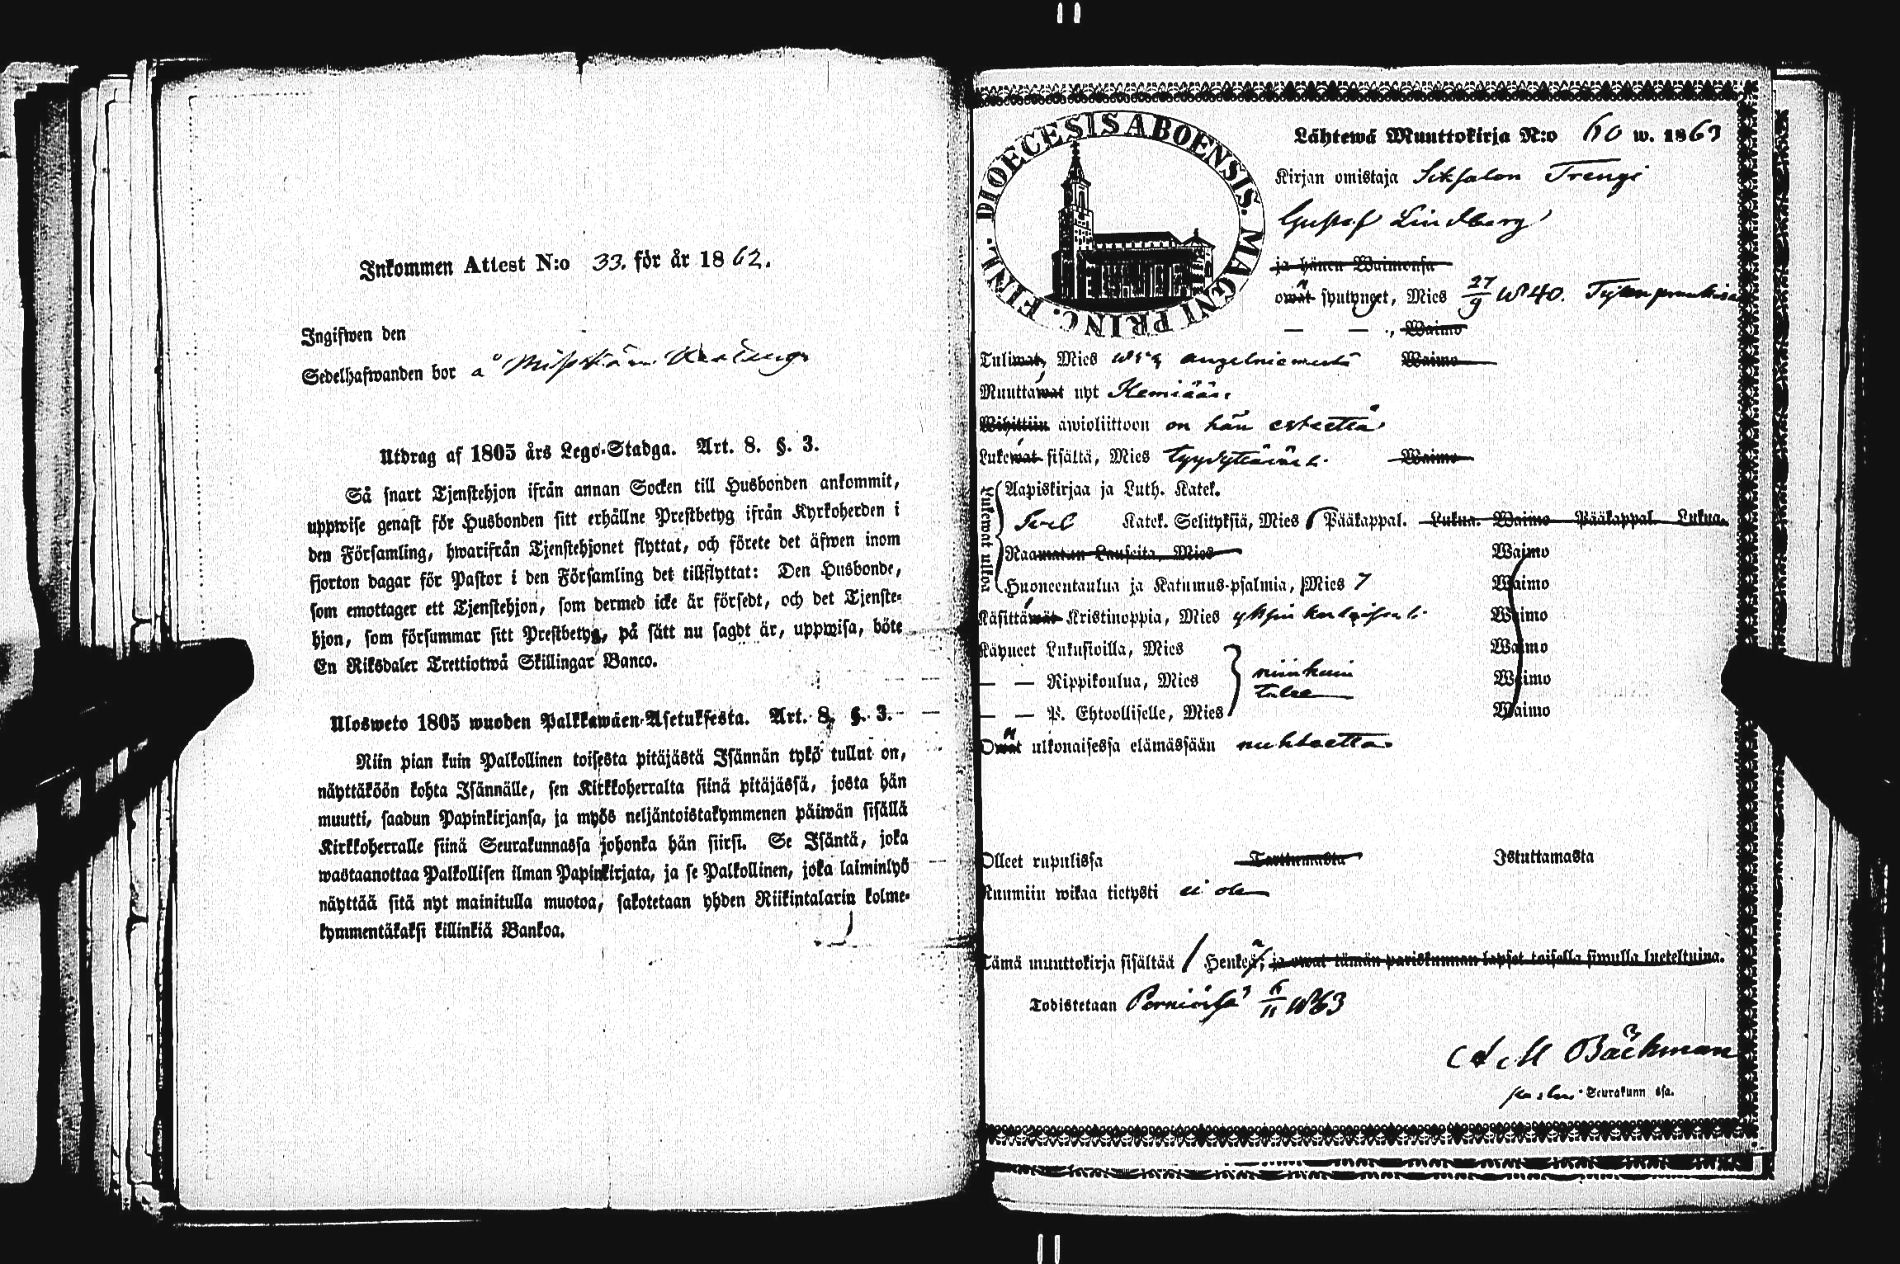 Inkommen Attest N:o 33. för år 1862.
Ingifwen den
Sedelhafwanden bor å
Utdrag af 1805 års Lego-Stadga. Art. 8. §. 3.
Så snart Tjenstehjon ifrån annan Socken till Husbonden ankommit,
uppwise genast för Husbonden sitt erhållne Prestbetyg ifrån Kyrkoherden i
den Församling, hwarifrån Tjenstehjonet flyttat, och förete det äfwen inom
fjorton dagar för Pastor i den Församling det tillflyttat: Den Husbonde,
som emottager ett Tjenstehjon, som dermed icke är försedt, och det Tjenste-
hjon, som försummar sitt Prestbetyg, på sätt nu sagdt är, uppwisa, böte
En Riksdaler Trettiotwå Skillingar Banco.
Ulosweto 1805 wuoden Palkkawäen-Asetuksesta. Art. 8. §. 3.
Niin pian kuin Palkollinen toisesta pitäjästä Isännän tykö tullut on,
näyttäköön kohta Isännälle, sen Kirkkoherralta siinä pitäjässä, josta hän
muutti, saadun Papinkirjansa, ja myös neljäntoistakymmenen päiwän sisällä
Kirkkoherralle siinä Seurakunnassa johonka hän siirsi. Se Isäntä, joka
wastaanottaa Palkollisen ilman Papinkirjata, ja se Palkollinen, joka laiminlyö
näyttää sitä nyt mainitulla muotoa, sakotetaan yhden Riikintalarin kolme-
kymmentäkaksi killinkiä Bankoa.
DIOECESIS ABOENSIS. MAGNI PRINC. FINL.
Lähtewä Muuttokirja N:o 60 w. 1863
Kirjan omistaja Trengi
Gustaf Lindberg
ja hänen Waimonsa
owat syntyneet, Mies 27/9 40.
— — ., Waimo
Tuliwat, Mies Waimo
Muuttawat nyt Kemiään.
Wihittiin awioliittoon on hän esteettä.
Lukewat sisältä, Mies tyydyttäwästi. Waimo
Lukewat ulkoa
Aapiskirjaa ja Luth. Katek.
Katek. Selityksiä, Mies Pääkappal. Lukua. Waimo Pääkappal. Lukua.
Raamatun Lauseita, Mies Waimo
Huoneentaulua ja Katumus-psalmia, Mies 7 Waimo
Käsittäwät Kristinoppia, Mies Waimo
Käyneet Lukusioilla, Mies Waimo
— — Rippikoulua, Mies niinkuin Waimo
— — P. Ehtoolliselle, Mies Waimo
Owat ulkonaisessa elämässään nuhteetta.
Olleet rupulissa Tarttumasta Istuttamasta
Ruumiin wikaa tietysti ei ole
Tämä muuttokirja sisältää 1 Henkeä, ja owat tämän pariskunnan lapset toisella siwulla lueteltuina.
Todistetaan Perniössä 6/11 63
Bäckman
Seurakunn ssa.